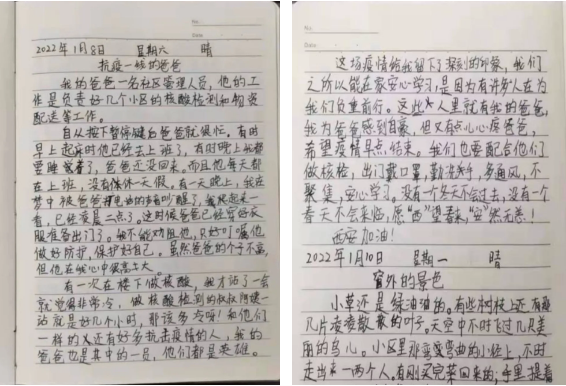 No.
Date
2022年1月8日 星期六 晴
抗疫一线的爸爸
我的爸爸一名社区管理人员，他的工
作是负责好几个小区的核酸检测和物资
配送等工作。
自从按下暂停键后爸爸就很忙。有时
早上起床时他已经去上班了，有时晚上我都
要睡觉着了，爸爸还没回来。而且他每天都
在上班，没有休休一天假。有一天晚上，我在
梦中被爸爸打电话的声音吵醒了，我爬起来一
看，已经凌晨二点了。这时候爸爸已经穿好衣
服准备出门了。我不能劝阻他，只好叮嘱他
做好防护，保护好自己。虽然爸爸的个子不高，
但他在我心中很高大。
有一次在楼下做核酸，我才站了一会
就觉得非常冷，做核酸检测的叔叔阿姨一
站就是好几个小时，那该多冷呀！和他们
一样的人还有好多抗击疫情的人，我的
爸爸也是其中的一员，他们都是英雄。
No.
Date
这场疫情给我留下了深刻的印象，我们
之所以能在家安心学习，是因为有许多人在为
我们负重前行。这些人里就有我的爸爸，
我为爸爸感到自豪，但又有点儿心疼爸爸，
希望疫情早点结束。我们也要配合他们
做核检，出门戴口罩，勤洗手，多通风，不
聚集，安心学习。没有一个冬天不会过去，没有一个
春天不会来临，愿“西”望春来，“安”然无恙！
西安加油！
2022年1月10日 星期一 晴
窗外的景色
小草还是绿油油的。有些树枝上还有
几片凌凌散散的叶子。天空中不时飞过几只美
丽的鸟儿。小区里那弯弯曲曲的小路上，不时
走出来一两个人。有刚买完菜回来的，手里提着